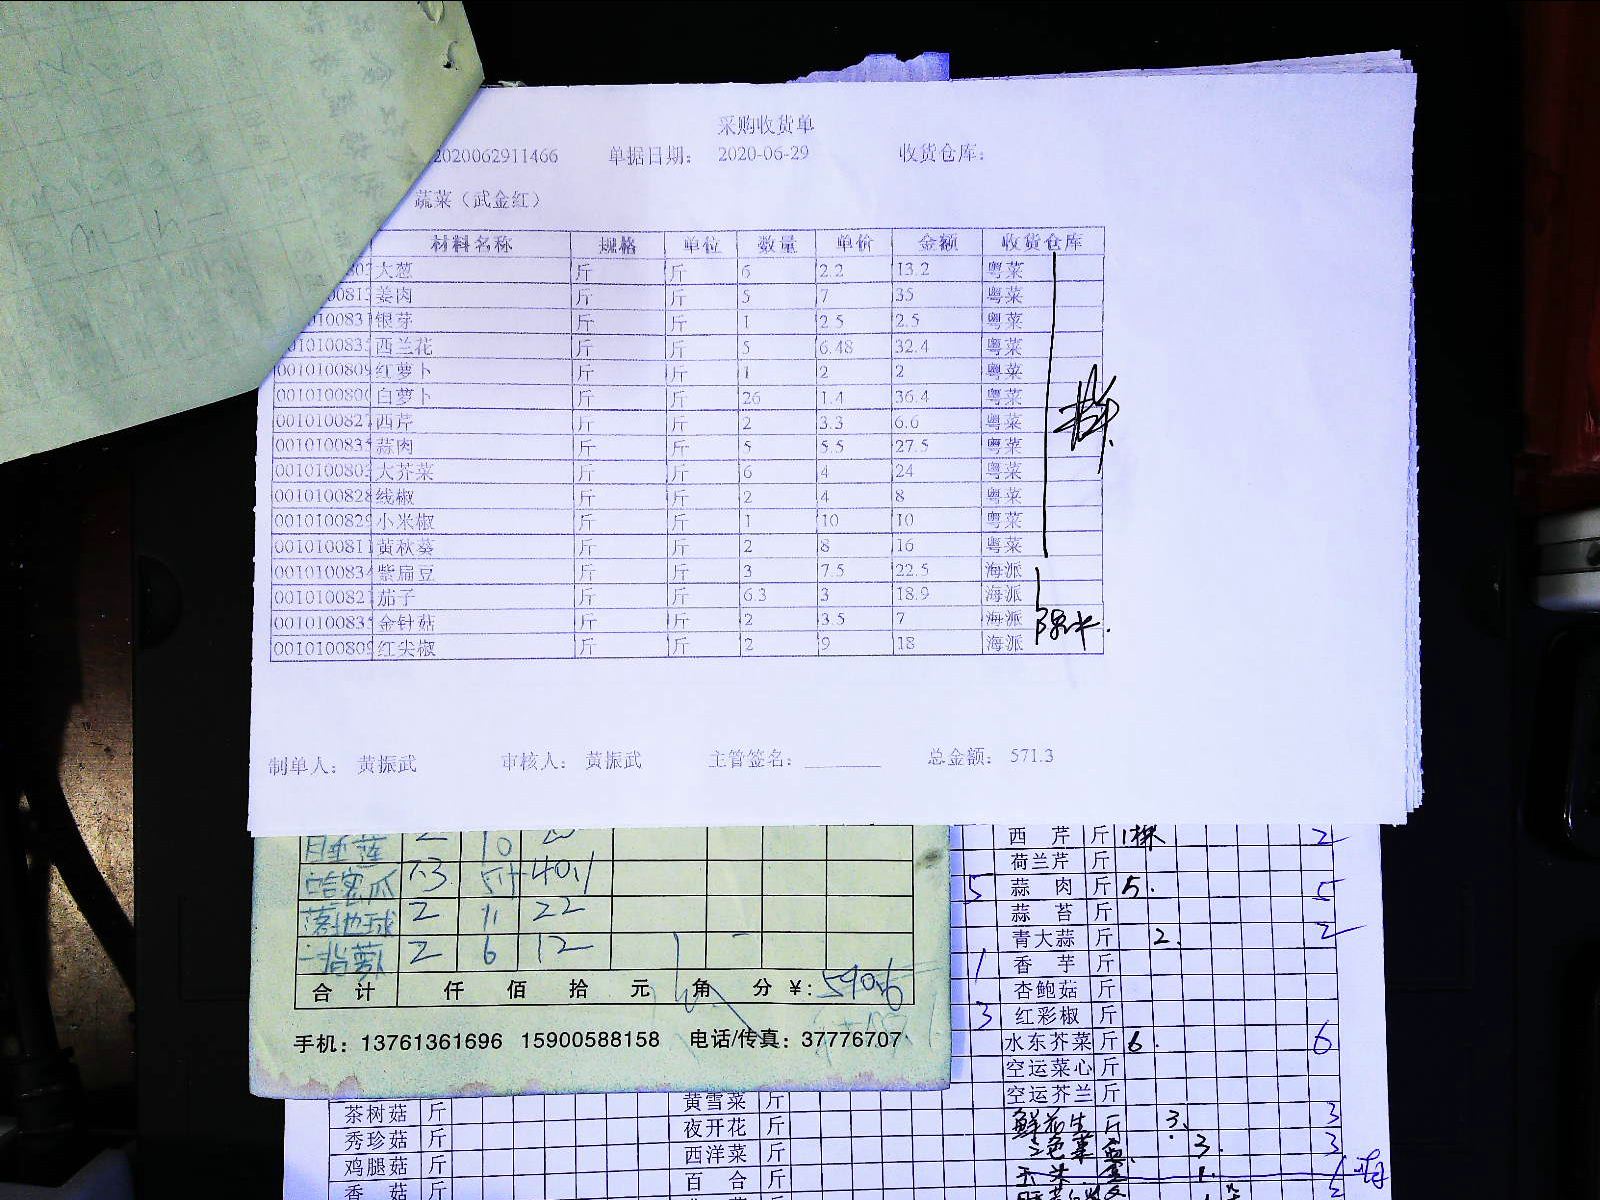 采购收货单
2020062911466 单据日期： 2020-06-29 收货仓库：
蔬菜（武金红）
材料名称 规格 单位 数量 单价 金额 收货仓库
大葱 斤 斤 6 2.2 13.2 粤菜
0081 姜肉 斤 斤 5 7 35 粤菜
010083 银芽 斤 斤 1 2.5 2.5 粤菜
001010083 西兰花 斤 斤 5 6.48 32.4 粤菜
0010100809 红萝卜 斤 斤 1 2 2 粤菜
0010100800 白萝卜 斤 斤 26 1.4 36.4 粤菜
001010082 西芹 斤 斤 2 3.3 6.6 粤菜
001010083 蒜肉 斤 斤 5 5.5 27.5 粤菜
001010080 大芥菜 斤 斤 6 4 24 粤菜
0010100828 线椒 斤 斤 2 4 8 粤菜
0010100829 小米椒 斤 斤 1 10 10 粤菜
0010100811 黄秋葵 斤 斤 2 8 16 粤菜
0010100834 紫扁豆 斤 斤 3 7.5 22.5 海派
001010082 茄子 斤 斤 6.3 3 18.9 海派
001010083 金针菇 斤 斤 2 3.5 7 海派
0010100809 红尖椒 斤 斤 2 9 18 海派
制单人： 黄振武 审核人： 黄振武 主管签名： 总金额： 571.3
西芹 斤 2
荷兰芹 斤
5 蒜肉 斤 5. 5
蒜苔 斤
青大蒜 斤 2. 2
1 香芋 斤
杏鲍菇 斤
3 红彩椒 斤
水东芥菜 斤 6. 6
空运菜心 斤
空运芥兰 斤
鲜花生 斤 3. 3
三色堇 盒 3. 3
哈密瓜 40.1
落地球 2 11 22
2 6 12
合计 仟 佰 拾 元 角 分 ¥: 590.6
手机：13761361696 15900588158 电话/传真：37776707
茶树菇 斤 黄雪菜 斤
秀珍菇 斤 夜开花 斤
鸡腿菇 斤 西洋菜 斤
香菇 斤 百合 斤